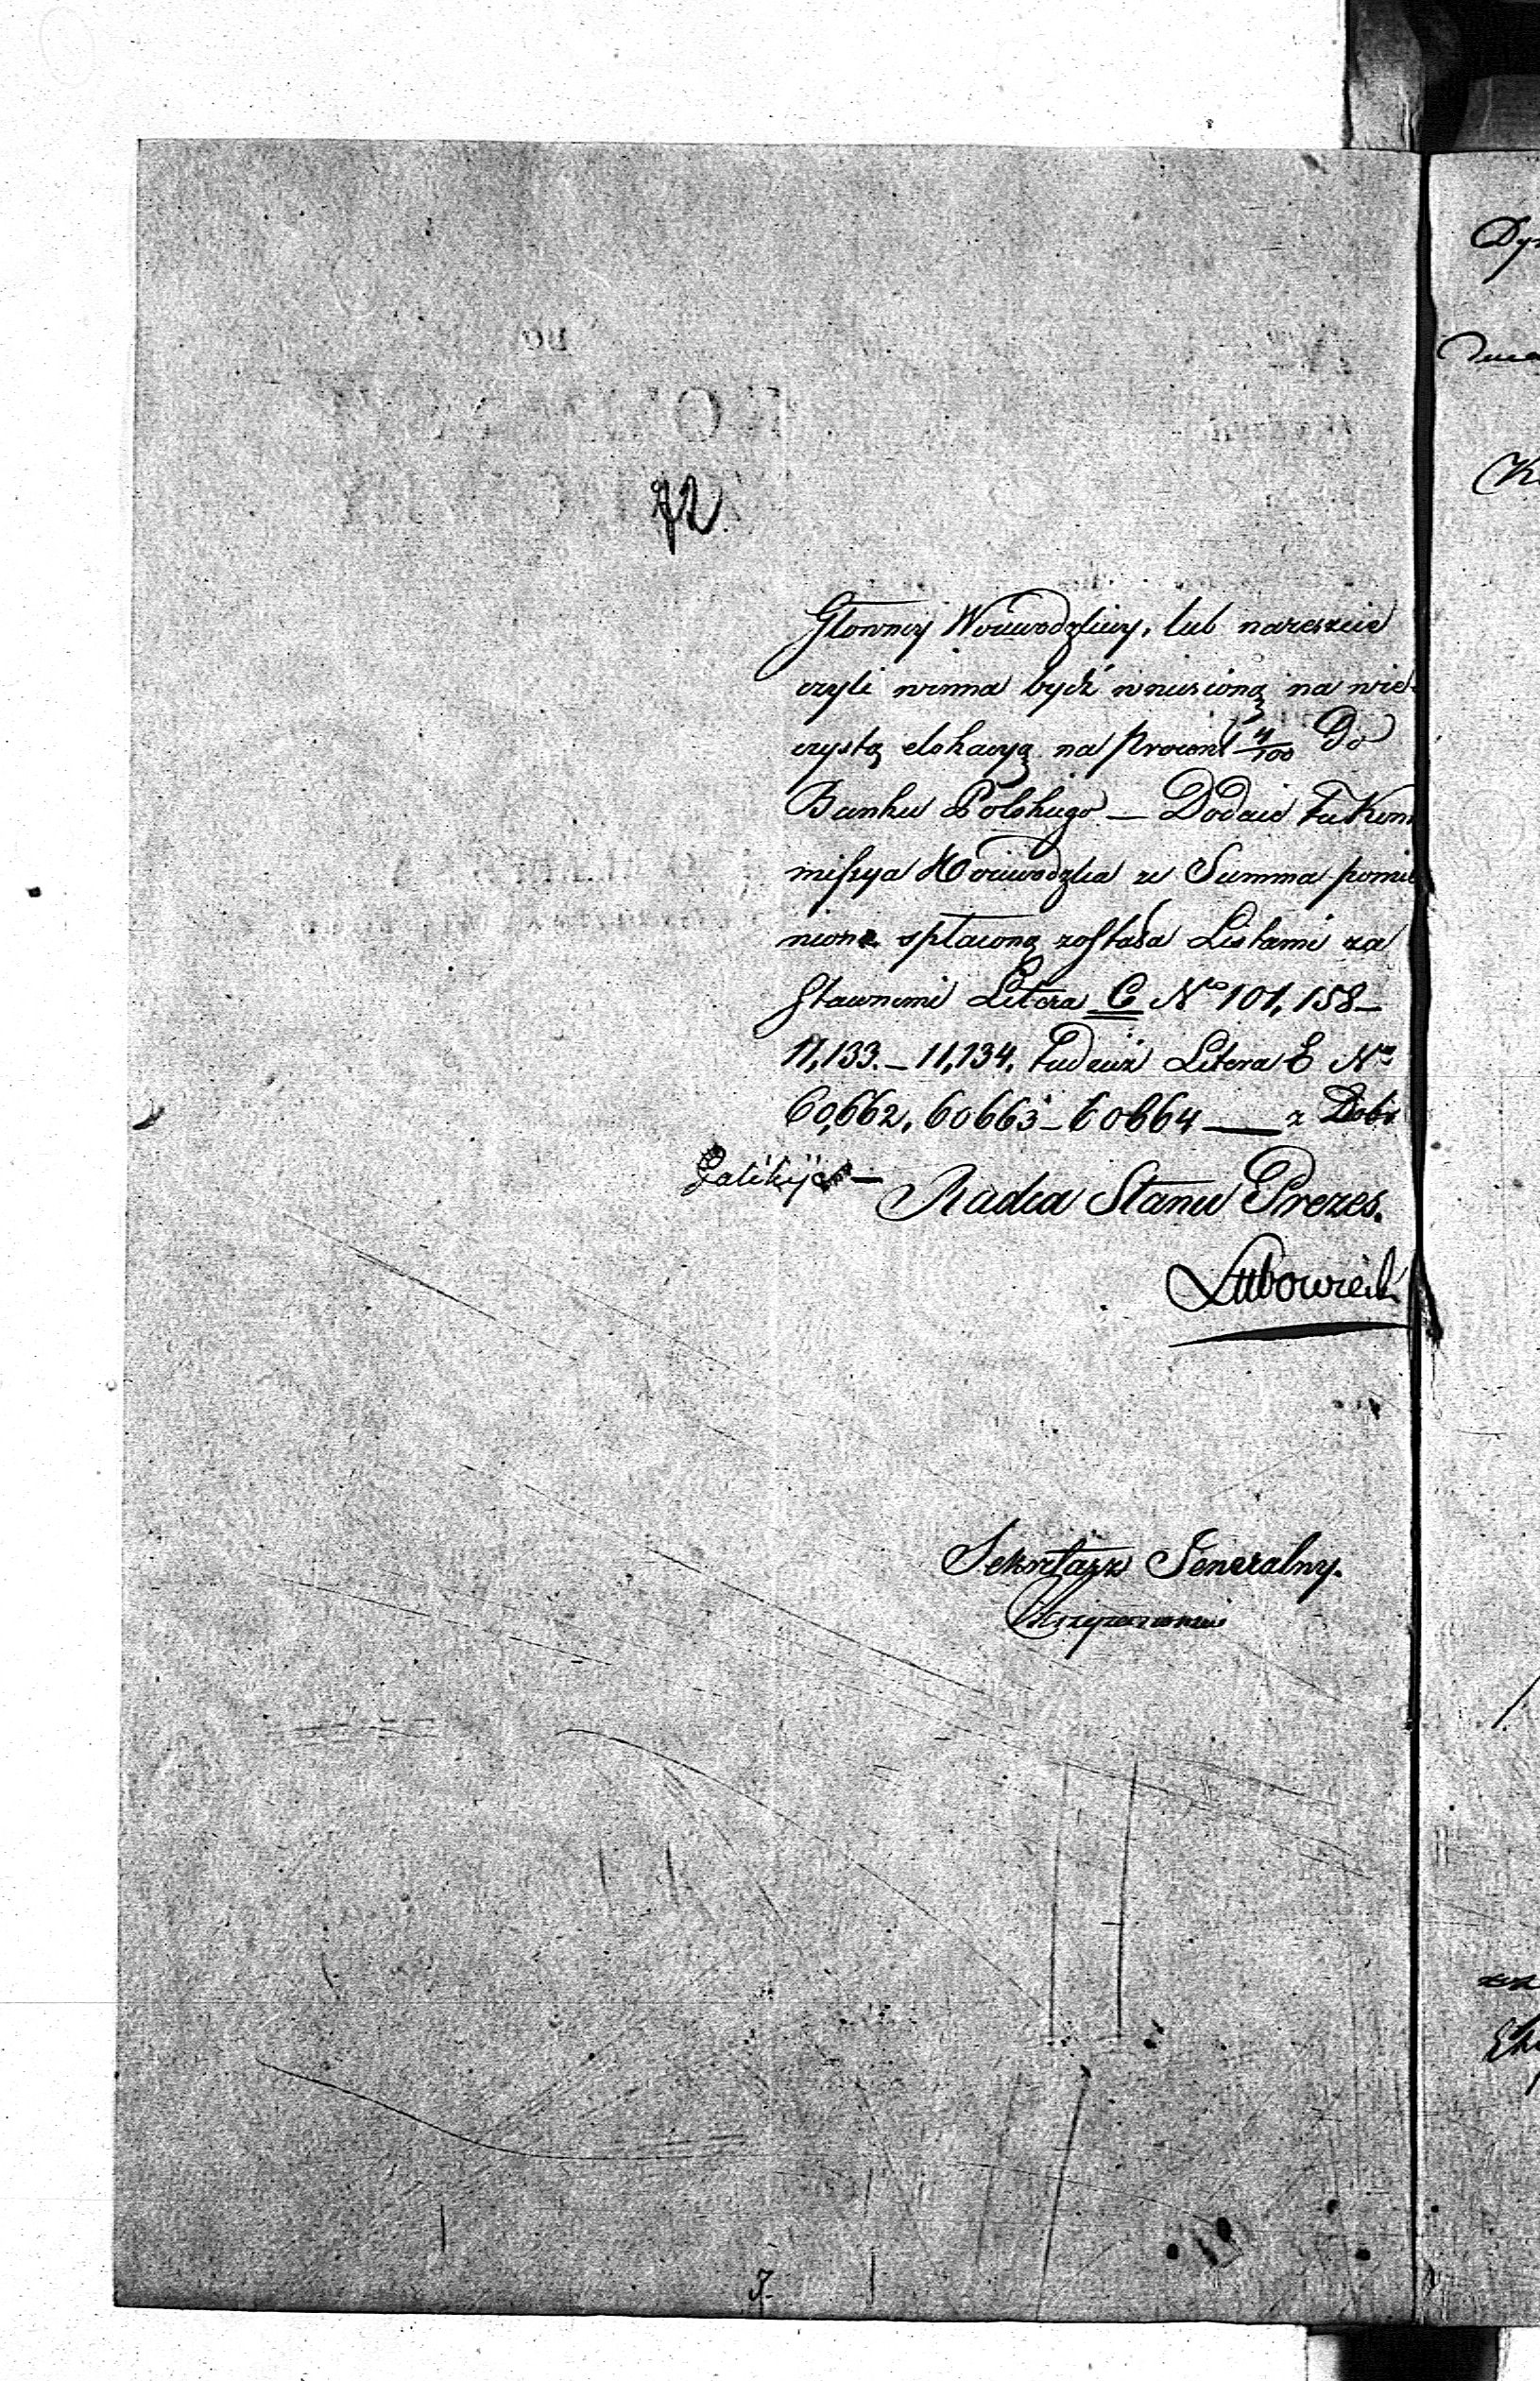 72
Głowney Woiewodzkiey, lub nareszcie
czyli winna bydź wniesioną na wie-
czystą elokacyą na procent 4/100 Do
Banku Polskiego — Dodaie tu Kom
missya Woiewodzka że Summa pomie
niona spłaconą została Listami za
stawnemi Litera C No 101,158 —
11,133. — 11,134. tudzież Litera E Nro
60,662. 60663 — 60664 — z Dobr
Radca Stanu Prezes.
Lubowiecki
Sekretarz Generalny.